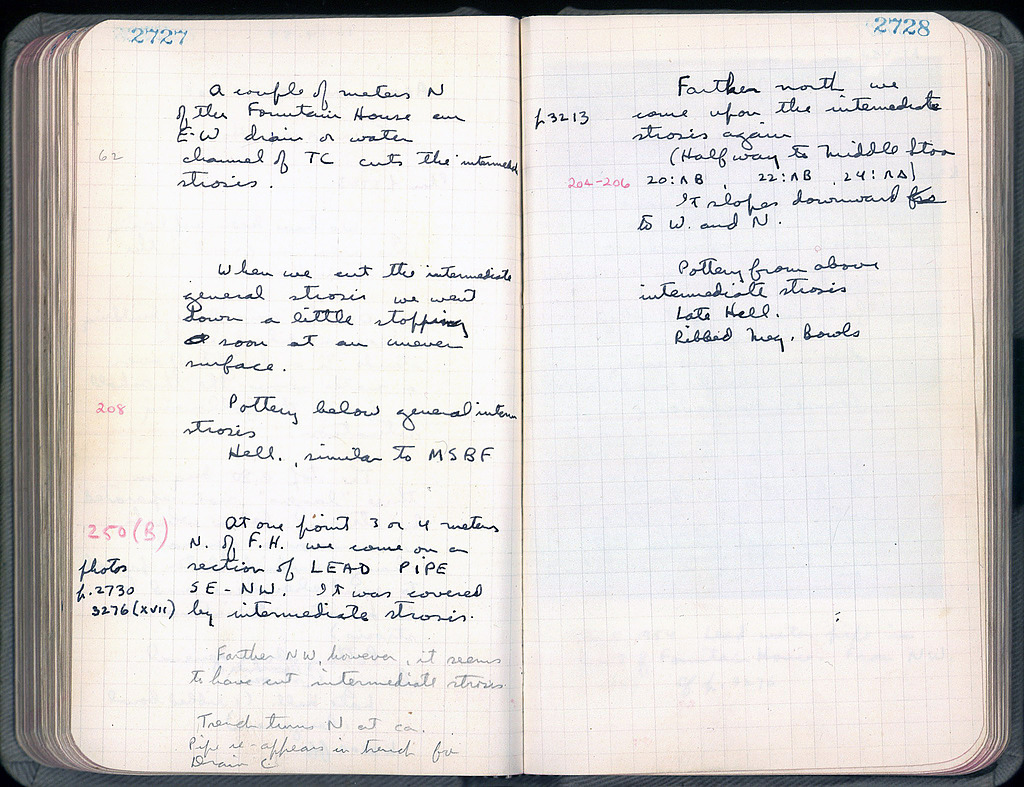 2727
A couple of meters N
of the Fountain House an
E-W drain or water
62
channel of TC cuts the intermed
strosis.
When we cut the intermediate
general strosis we went
down a little stopping
soon at an uneven
surface.
208
Pottery below general interm
strosis
Hell., similar to MSBF
250 (B)
At one point 3 or 4 meters
N. of F.H. we come on a
photos
section of LEAD PIPE
p. 2730
SE-NW. It was covered
3276 (XVII)
by intermediate strosis.
Farther NW, however, it seems
to have cut intermediate strosis.
Trench turns N at ca.
Pipe re-appears in trench for
Drain C
2728
Farther north we
p. 3213
come upon the intermediate
strosis again
(Half way to Middle Stoa
204-206
20:ΛB, 22:ΛB, 24:ΛΔ)
It slopes downward
to W. and N.
Pottery from above
intermediate strosis
Late Hell.
Ribbed Meg. Bowls